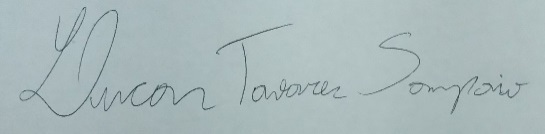 Duncan Tavares Sampaio